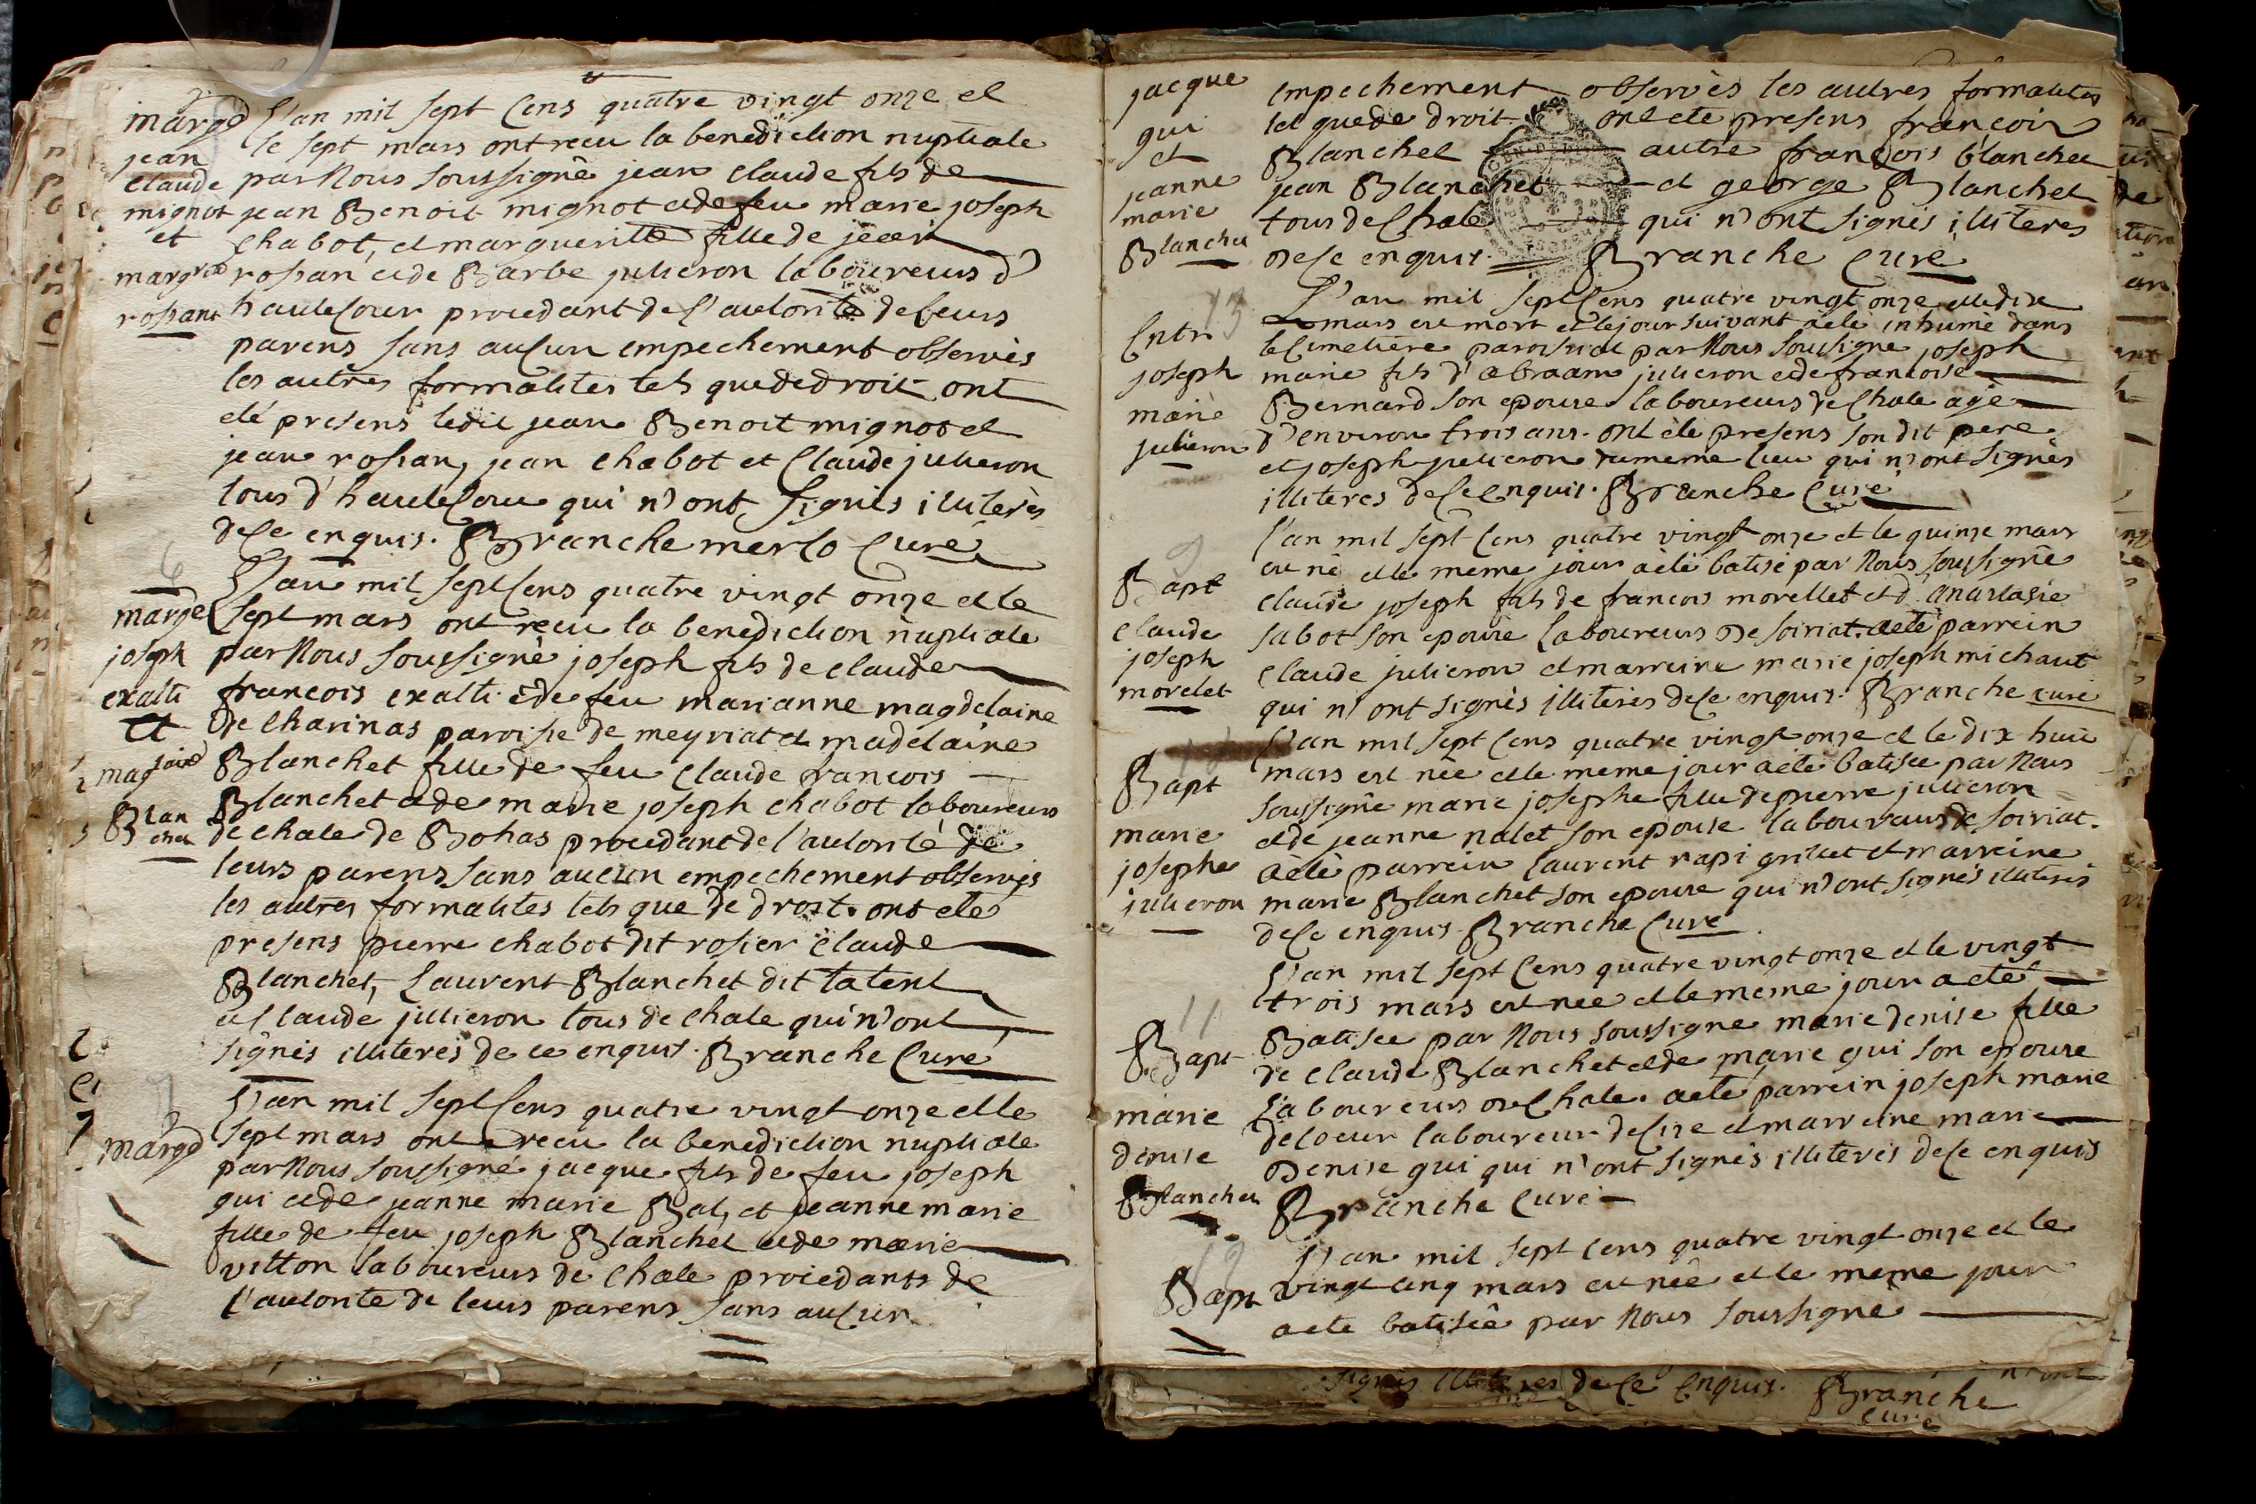 marge
jean
claude
mignot
et
margrite
rossant
L'an mil sept Cens quatre vingt onze et
le sept mars ont recu la benediction nuptiale
par Nous Soussigné jean claude fils de
jean Benoit mignot et de feu marie joseph
chabot, et margueritte fille de jean
rossan et de Barbe julieron laboureurs d'
hauteCour procedant de l'autorité de leurs
parens Sans auCun empechement observés
les autres formalites tels que de droit ont
été presens ledit jean Benoit mignot et
jean rossan, jean chabot et Claude julieron
tous d'hauteCour qui n'ont Signés illiterés
de Ce enquis. Branche merlo Curé
6
marge
joseph
exalti
et
magdelaine
Blanchet
L'an mil sept Cens quatre vingt onze et le
Sept mars ont recu la benediction nuptiale
par Nous Soussigné joseph fils de claude
francois exalti et de feu marianne magdelaine
de Charinas paroisse de meyriat et madelaine
Blanchet fille de feu Claude francois
Blanchet et de marie joseph chabot laboureurs
de chale de Bohas procedant de l'autorité de
leurs parens Sans aucun empechement observés
les autres formalites tels que de droit. ont été
presens pierre chabot dit rosier Claude
Blanchet, Laurent Blanchet dit
et Claude julieron tous de Chale qui n'ont
Signés illiterés de ce enquis. Branche Curé
7
marge
L'an mil Sept Cens quatre vingt onze et le
Sept mars ont recu la benediction nuptiale
par Nous Soussigné jacque fils de feu joseph
qui et de jeanne marie Bal, et jeanne marie
fille de feu joseph Blanchet et de marie
vitton laboureurs de Chale procedants de
l'autorite de leurs parens Sans auCun
jacque
qui
et
jeanne
marie
Blanchet
empechement observés les autres formalités
tel que de droit ont été presens francois
Blanchet autre francois blanchet
jean Blanchet et george Blanchet
tous de Chale qui n'ont Signés illiterés
de Ce enquis. Branche Curé
13
Entr
joseph
marie
julieron
L'an mil Sept Cens quatre vingt onze et le dix
mars est mort et le jour suivant à été inhumé dans
le Cimetiere paroissial par Nous Soussigné joseph
marie fils d'abraam julieron et de francoise
Bernard Son epouse laboureurs de Chale agé
d'environ trois ans. ont été presens Son dit pere
et joseph julieron du meme lieu qui n'ont Signés
illiterés de Ce enquis. Branche Curé
9
Bapt
claude
joseph
morelet
L'an mil sept Cens quatre vingt onze et le quinze mars
est né et le meme jour à été batisé par Nous Soussigné
claude joseph fils de francois morellet et d'anastasie
sabot son epouse laboureurs de soiriat. à été parrein
Claude julieron et marreine marie joseph michaut
qui n'ont signés illiterés de Ce enquis. Branche curé
Bapt
marie
josephe
julieron
L'an mil sept Cens quatre vingt onze et le dix huit
mars est née et le meme jour à été batisée par Nous
Soussigné marie josephe fille de pierre julieron
et de jeanne nalet son epouse laboureurs de soiriat.
à été parrein laurent rapi grillet et marreine
marie Blanchet son epouse qui n'ont signés illiterés
de Ce enquis. Branche Curé
11
Bapt
marie
denise
Blanchet
L'an mil sept Cens quatre vingt onze et le vingt
trois mars est née et le meme jour à été
Batisée par Nous Soussigné marie denise fille
de Claude Blanchet et de marie qui son epouse
laboureurs de Chale. à été parrein joseph marie
deloeur laboureur de Cize et marreine marie
Denise qui qui n'ont Signés illiterés de Ce enquis
Branche Curé
12
Bapt
L'an mil sept Cens quatre vingt onze et le
vingt cinq mars est née et le meme jour
à été batisée par Nous Soussigné
n'ont
signés illiterés de Ce Enquis. Branche
Curé